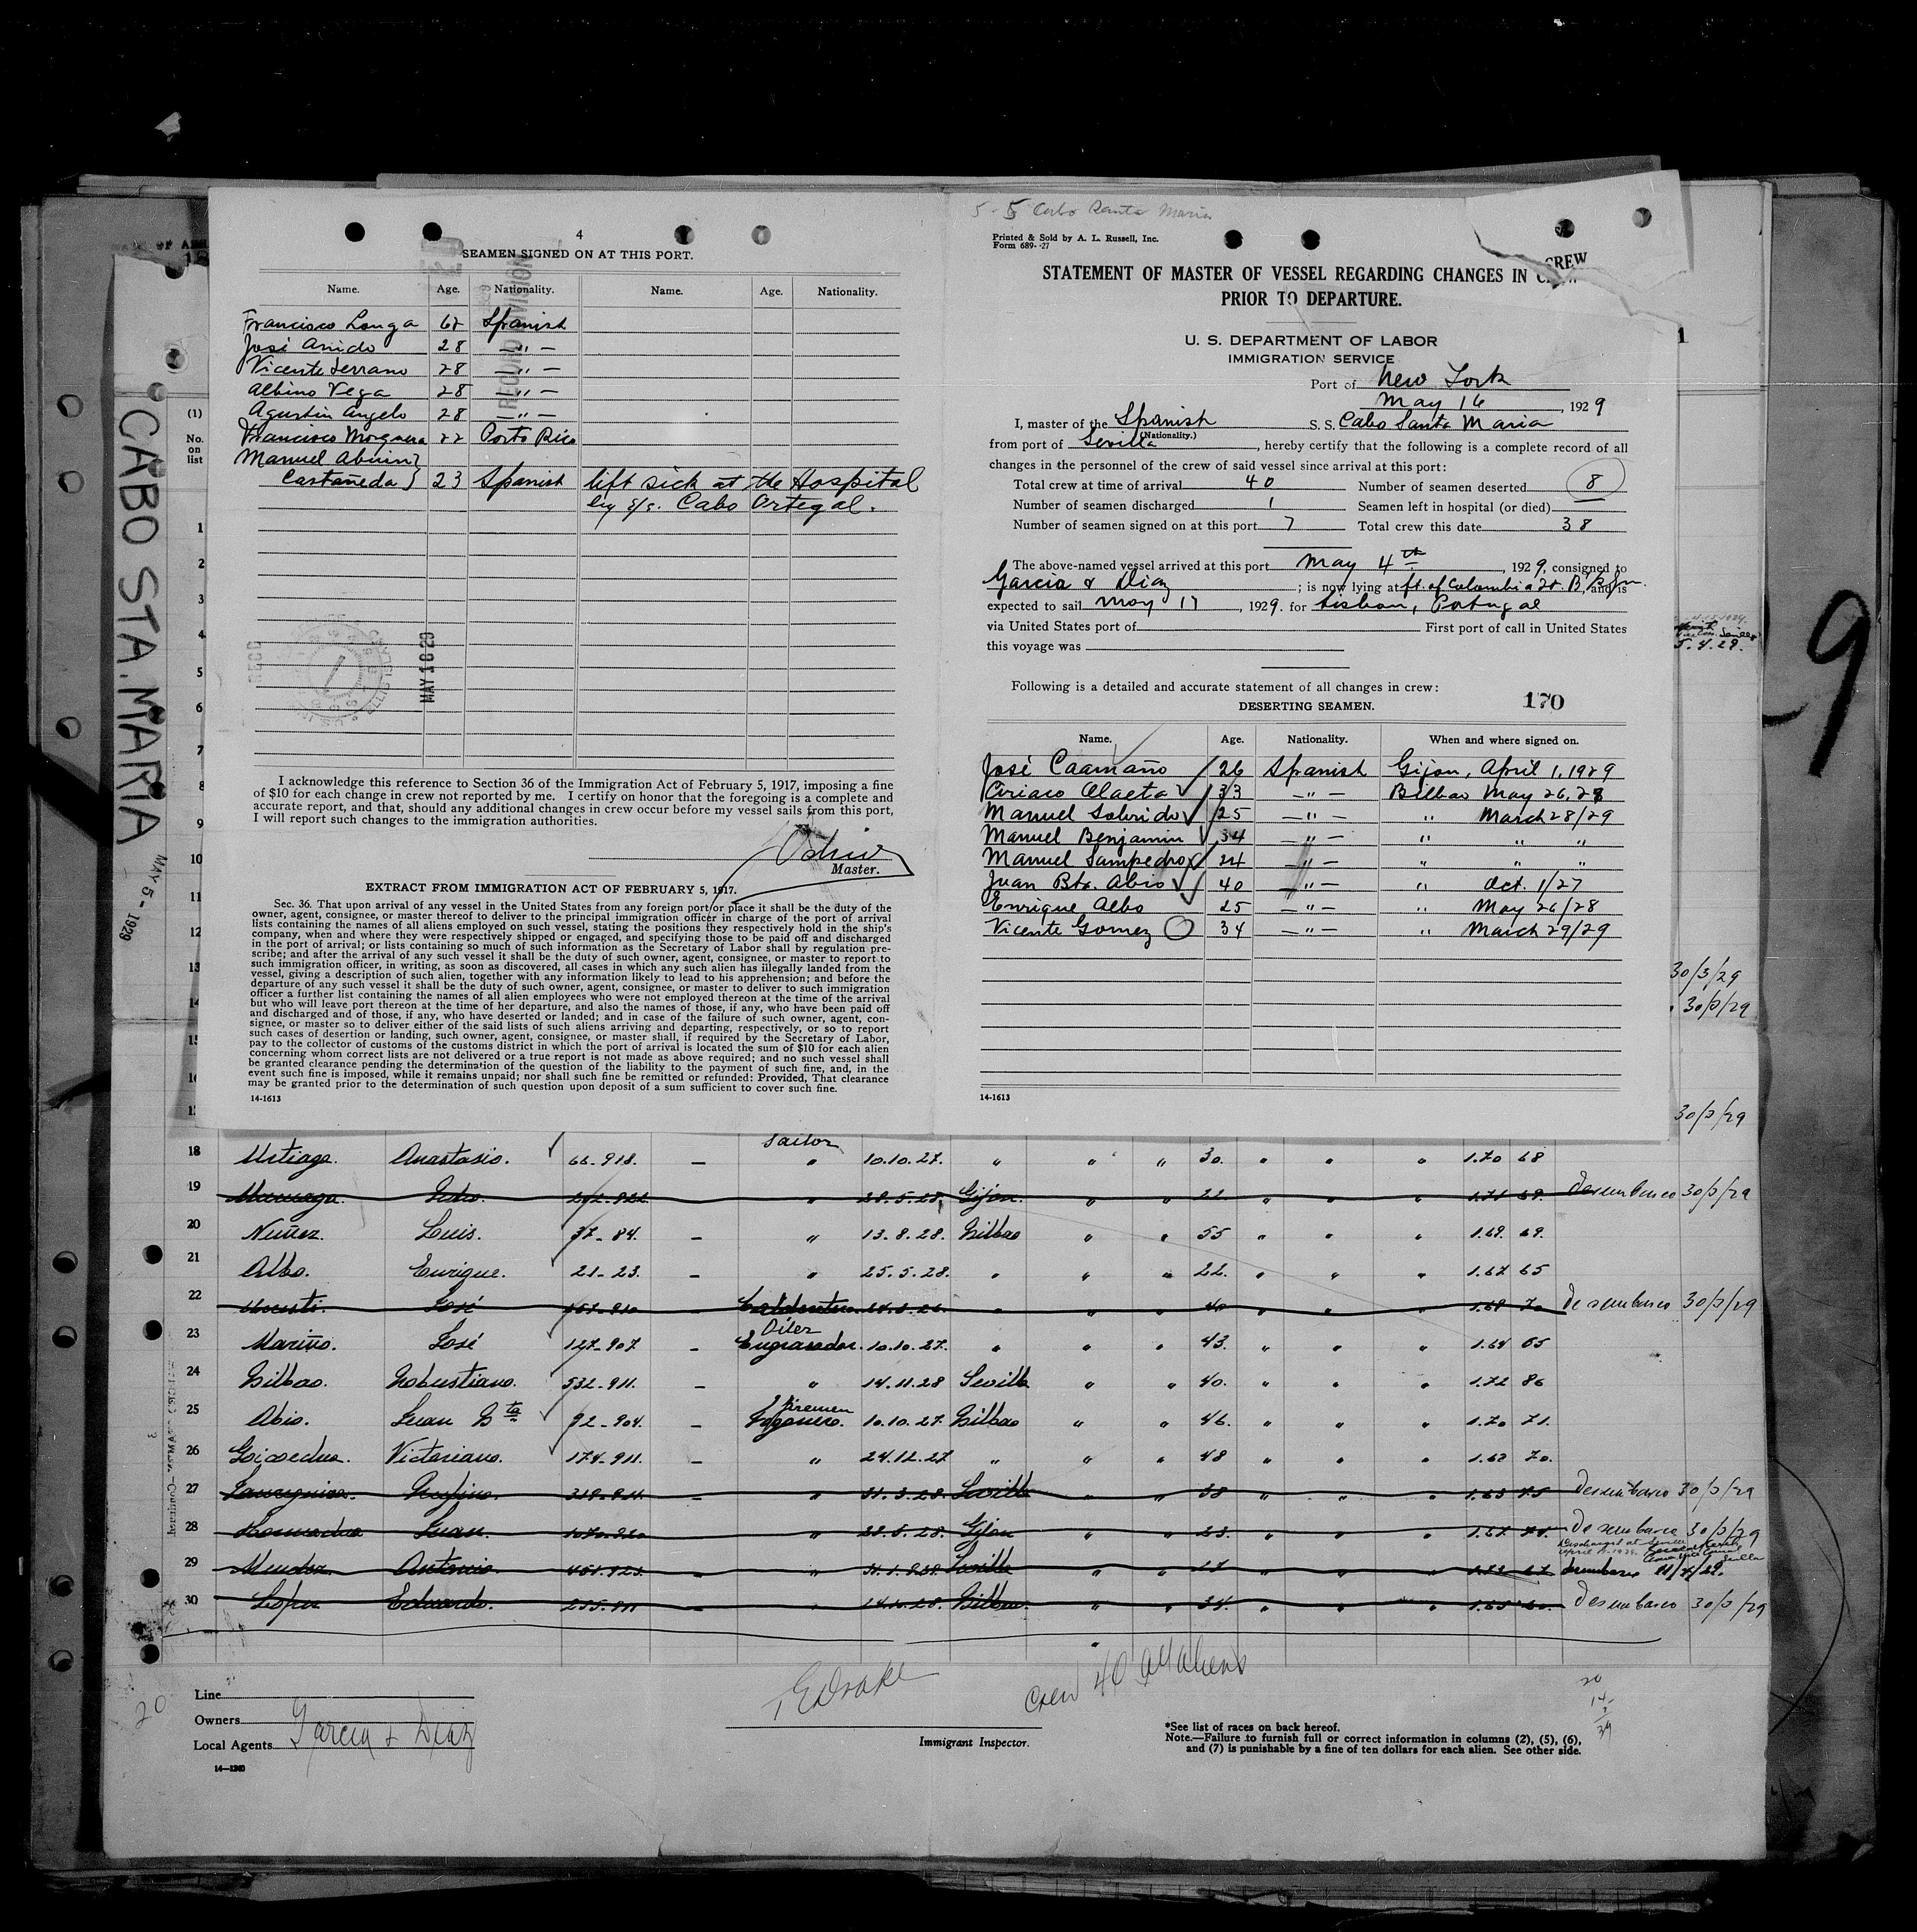 4
SEAMEN SIGNED ON AT THIS PORT.
Name. Age. Nationality. Name. Age. Nationality.
Francisco Longa 62 Spanish
José Anido 28 — " —
Vicente Serrano 28 — " —
Albino Vega 28 — " —
Agustin Angelo 28 — " —
Francisco Morguera 22 Porto Rico
Manuel Abuin
Castañeda } 23 Spanish left sick at the Hospital
by s/s. Cabo Ortegal.
RECORD DIVISION
MAY 16 29
I acknowledge this reference to Section 36 of the Immigration Act of February 5, 1917, imposing a fine
of $10 for each change in crew not reported by me. I certify on honor that the foregoing is a complete and
accurate report, and that, should any additional changes in crew occur before my vessel sails from this port,
I will report such changes to the immigration authorities.
Master.
EXTRACT FROM IMMIGRATION ACT OF FEBRUARY 5, 1917.
Sec. 36. That upon arrival of any vessel in the United States from any foreign port or place it shall be the duty of the
owner, agent, consignee, or master thereof to deliver to the principal immigration officer in charge of the port of arrival
lists containing the names of all aliens employed on such vessel, stating the positions they respectively hold in the ship's
company, when and where they were respectively shipped or engaged, and specifying those to be paid off and discharged
in the port of arrival; or lists containing so much of such information as the Secretary of Labor shall by regulation pre-
scribe; and after the arrival of any such vessel it shall be the duty of such owner, agent, consignee, or master to report to
such immigration officer, in writing, as soon as discovered, all cases in which any such alien has illegally landed from the
vessel, giving a description of such alien, together with any information likely to lead to his apprehension; and before the
departure of any such vessel it shall be the duty of such owner, agent, consignee, or master to deliver to such immigration
officer a further list containing the names of all alien employees who were not employed thereon at the time of the arrival
but who will leave port thereon at the time of her departure, and also the names of those, if any, who have been paid off
and discharged and of those, if any, who have deserted or landed; and in case of the failure of such owner, agent, con-
signee, or master so to deliver either of the said lists of such aliens arriving and departing, respectively, or so to report
such cases of desertion or landing, such owner, agent, consignee, or master shall, if required by the Secretary of Labor,
pay to the collector of customs of the customs district in which the port of arrival is located the sum of $10 for each alien
concerning whom correct lists are not delivered or a true report is not made as above required; and no such vessel shall
be granted clearance pending the determination of the question of the liability to the payment of such fine, and, in the
event such fine is imposed, while it remains unpaid; nor shall such fine be remitted or refunded: Provided, That clearance
may be granted prior to the determination of such question upon deposit of a sum sufficient to cover such fine.
14-1613
5-5 Cabo Santa Maria
Printed & Sold by A. L. Russell, Inc.
Form 689--27
CREW
STATEMENT OF MASTER OF VESSEL REGARDING CHANGES IN CREW
PRIOR TO DEPARTURE.
U. S. DEPARTMENT OF LABOR
IMMIGRATION SERVICE
Port of New York
May 16, 1929
I, master of the Spanish S. S. Cabo Santa Maria
(Nationality.)
from port of Sevilla, hereby certify that the following is a complete record of all
changes in the personnel of the crew of said vessel since arrival at this port:
Total crew at time of arrival 40 Number of seamen deserted 8
Number of seamen discharged 1 Seamen left in hospital (or died)
Number of seamen signed on at this port 7 Total crew this date 38
The above-named vessel arrived at this port May 4th, 1929, consigned to
Garcia & Diaz; is now lying at ft. of Columbia St. B'klyn., and is
expected to sail May 17, 1929. for Lisbon, Portugal
via United States port of First port of call in United States
this voyage was
Following is a detailed and accurate statement of all changes in crew:
170
DESERTING SEAMEN.
Name. Age. Nationality. When and where signed on.
José Caamaño 26 Spanish Gijon, April 1, 1929
Ciriaco Olaeta 33 — " — Bilbao May 26, 28
Manuel Sobrido 25 — " — " March 28/29
Manuel Benjamin 34 — " — " " "
Manuel Sampedro 24 — " — " " "
Juan Bta. Abio 40 — " — " Oct. 1/27
Enrique Albo 25 — " — " May 26/28
Vicente Gomez 34 — " — " March 29/29
14-1613
CABO STA. MARIA
MAY 5 - 1929
9
(1)
No.
on
list
1
2
3
4
5
6
7
8
9
10
11
12
13 30/3/29
14 30/3/29
30/3/29
Sailor
18 Urtiaga. Anastasio. 66-918. — " 10.10.27. " " " 30. " " " 1.70 68
19 " 28.5.28. Gijon. " " 22 " " " Desembarco 30/3/29
20 Nuñez. Luis. 37-84. — " 13.8.28. Bilbao " " 55 " " " 1.69. 69.
21 Albo. Enrique. 21-23. — " 25.5.28. " " " 22. " " " 1.67 65
22 José " " " 40 " " " Desembarco 30/3/29
Oiler
23 Mariño. José 127-907 — Engrasador. 10.10.27. " " " 43. " " " 1.64 65
24 Bilbao. Robustiano. 532-911. — " 14.11.28 Sevilla " " 40. " " " 1.72 86
Firemen
25 Abio. Juan Bta 92-904. — Fogonero. 10.10.27. Bilbao " " 46. " " " 1.70 71.
26 Goicoechea. Victoriano. 174-911. — " 24.12.27 " " " 48 " " " 1.62 70.
27 " 31.3.28. Sevilla " " 38 " " " Desembarco 30/3/29
28 Juan. " Gijon " " 23. " " " Desembarco 30/3/29
29 Antonio. " Sevilla " " " " "
30 Lopez Eduardo. " Bilbao. " " 34. " " " Desembarco 30/3/29
Line
Owners
Local Agents Garcia & Diaz
14—1240
Crew 40 all aliens
Immigrant Inspector.
*See list of races on back hereof.
Note.—Failure to furnish full or correct information in columns (2), (5), (6),
and (7) is punishable by a fine of ten dollars for each alien. See other side.
20